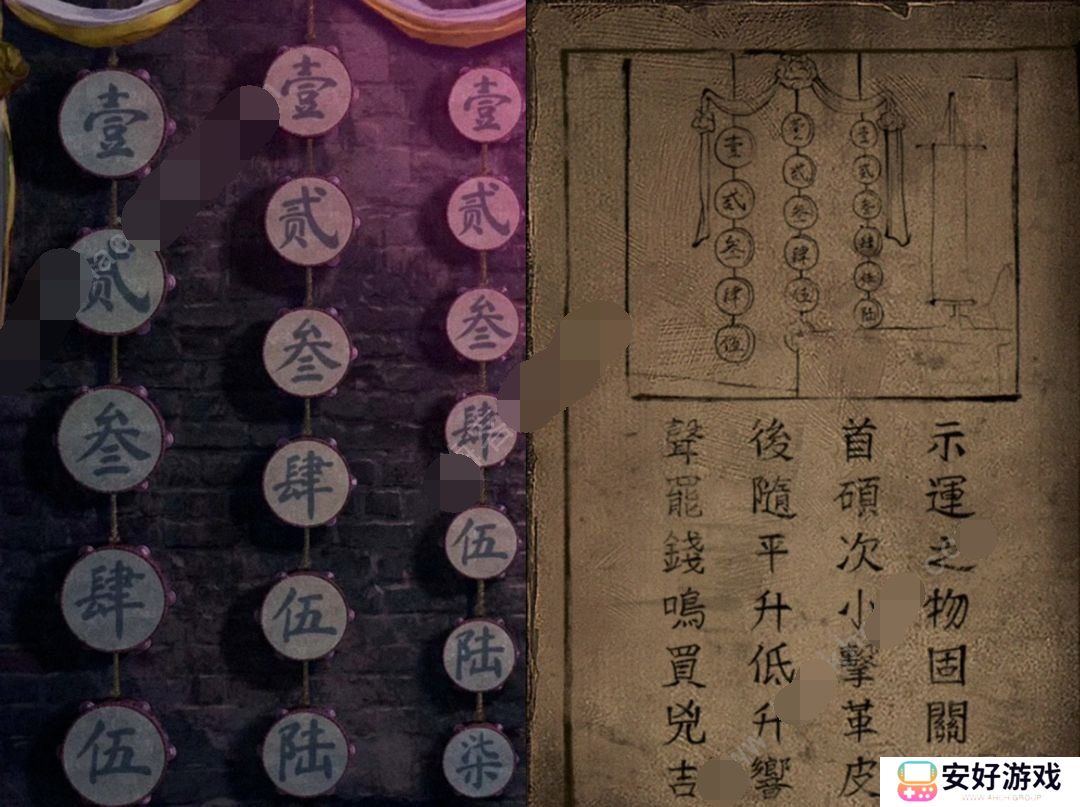 壹
贰
叁
肆
伍
壹
贰
叁
肆
伍
陆
壹
贰
叁
肆
伍
陆
柒
壹
貳
叁
肆
伍
壹
貳
叁
肆
伍
壹
貳
叁
肆
陆
示運之物固關
首碩次小擊革皮
後隨平升低升響
聲罷錢鳴買兇吉
安好游戏